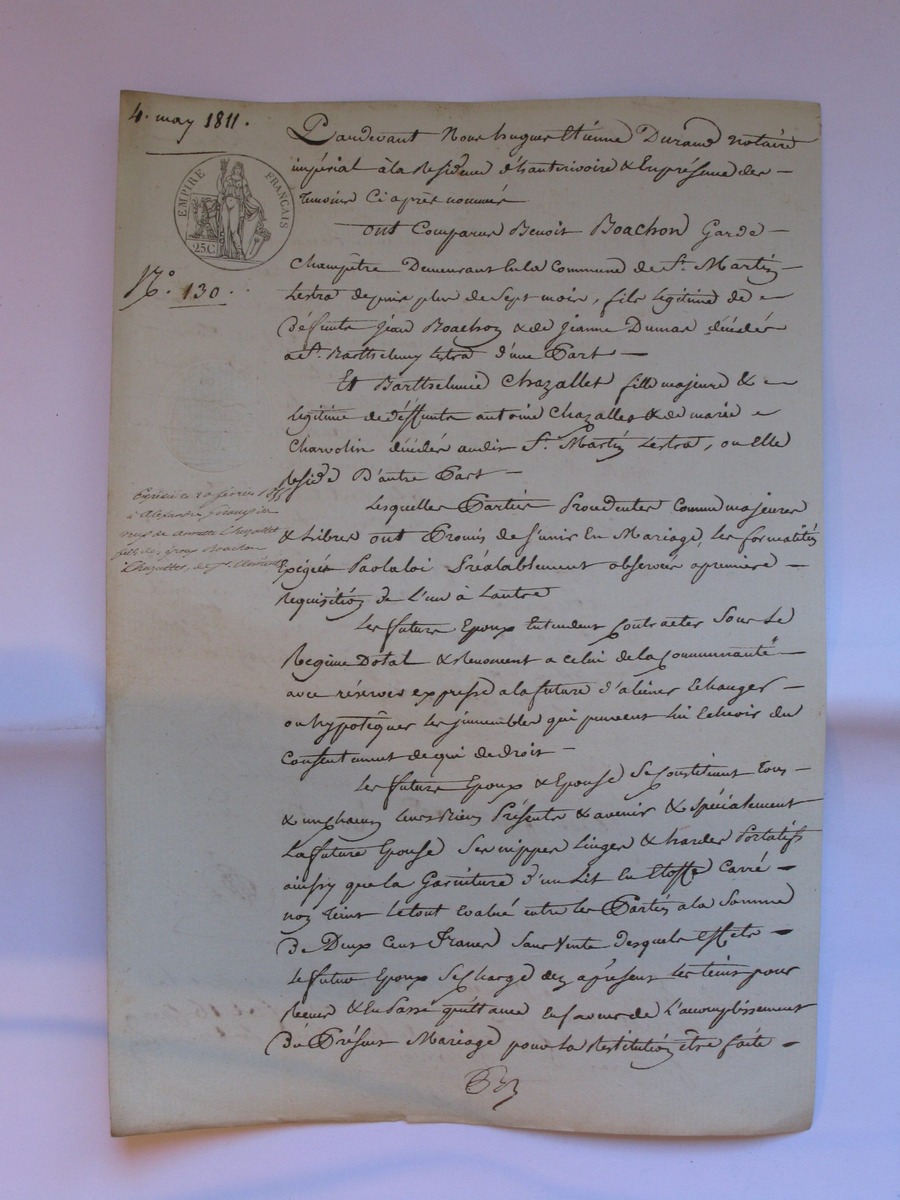 4. may 1811.
EMPIRE FRANÇAIS
25C
N.° 130.
Pardevant Nous hugues Etienne Durand notaire
impérial à la Residence d'hauterivoire & En présence des
Temoins Ci après nommés
ont Comparus Benoit Boachon Garde
Champêtre Demeurant En la Commune de St. Martin
Lestra depuis plus de Sept mois, fils legitime de
Défunts Jean Boachon & de Jeanne Dumas décédés
a St. Barthelemy Lestra d'une Part
Et Barthelmie Chazallet fille majeure &
legitime de Déffunts antoine Chazallet & de marie
Charvolin décédés audit St. Martin Lestra, ou Elle
reside D'autre Part
Lesquelles Parties Procedentes Comme majeures
& Libres ont Promis de S'unir En Mariage, les formalités
Exigées Par la loi Préalablement observées a premiere
requisition de L'un à Lautre
Les future Epoux Entendent Contracter Sous Le
Regime Dotal & renoncent a celui de la Communauté
avec réserves expresse a la future d'aliéner Echanger
ou hypotéquer les immeubles qui peuvent lui Echeoir du
Consentement de qui de droit
Les future Epoux & Epouse Se Constituent Tous
& un chacun leurs Biens Présents & avenir & spécialement
La future Epouse Ses nippes linges & hardes Portatifs
ainssy que la Garniture d'un Lit En Etoffe Carré
non teint le tout Evalué entre les Parties a la Somme
de Deux Cent Francs Sans Vente desquels Effets
le futur Epoux Se Charge dez apresent les tient pour
recus & En Passe quittance En faveur de L'accomplissement
du Présent Mariage pour La Restitution être faite
Expédié le 20 février 1855
à Alexandre
veuf de Chazallet
fille des époux Boachon
& Chazallet, de St.